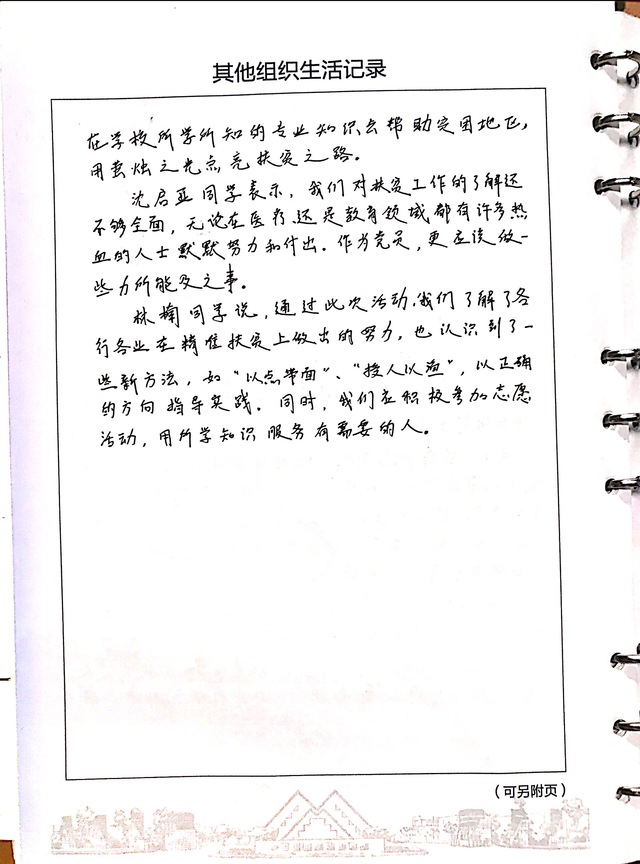 其他组织生活记录
在学校所学所知的专业知识去帮助定困地区,
用萤烛之光点亮扶贫之路。
沈启亚同学表示,我们对扶贫工作的了解还
不够全面,无论在医疗还是教育领域都有许多热
血的人士默默努力和付出。作为党员,更应该做一
些力所能及之事。
林楠同学说,通过此次活动,我们了解了各
行各业在精准扶贫上做出的努力,也认识到了一
些新方法,如“以点带面”、“授人以渔”,以正确
的方向指导实践。同时,我们应积极参加志愿
活动,用所学知识服务有需要的人。
(可另附页)